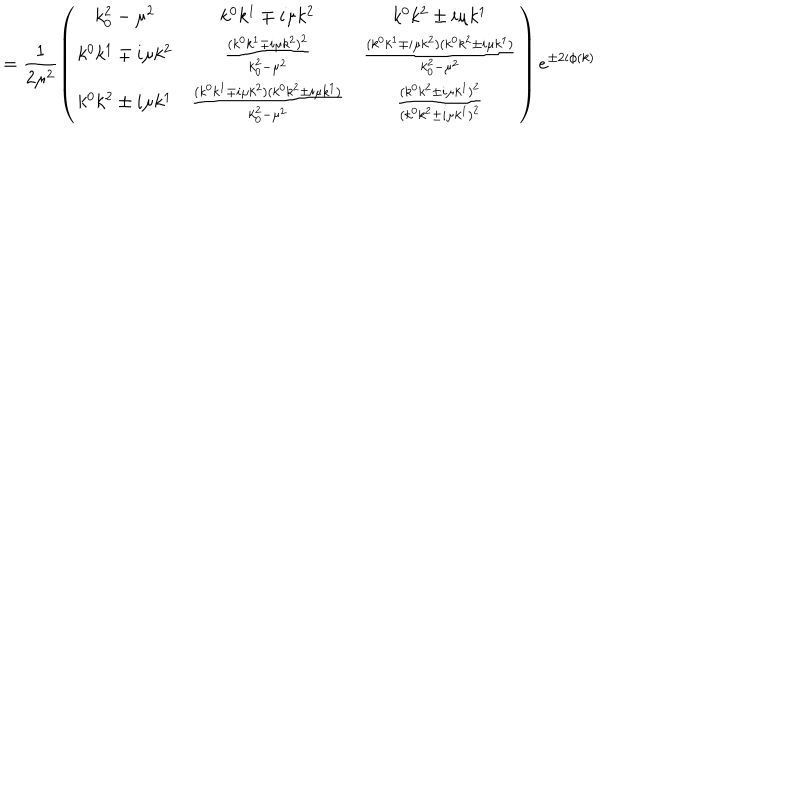 = \frac{1}{2\mu^2} \left( \begin{array}{ccc} k_0^2 - \mu^2 & k^0 k^1 \mp i\mu k^2 & k^0 k^2 \pm i\mu k^1 \\ k^0 k^1 \mp i\mu k^2 & \frac{(k^0 k^1 \mp i\mu k^2)^2}{k_0^2 - \mu^2} & \frac{(k^0 k^1 \mp i\mu k^2)(k^0 k^2 \pm i\mu k^1)}{k_0^2 - \mu^2} \\ k^0 k^2 \pm i\mu k^1 & \frac{(k^0 k^1 \mp i\mu k^2)(k^0 k^2 \pm i\mu k^1)}{k_0^2 - \mu^2} & \frac{(k^0 k^2 \pm i\mu k^1)^2}{(k^0 k^2 \pm i\mu k^1)^2} \end{array} \right) e^{\pm 2i\phi(k)}